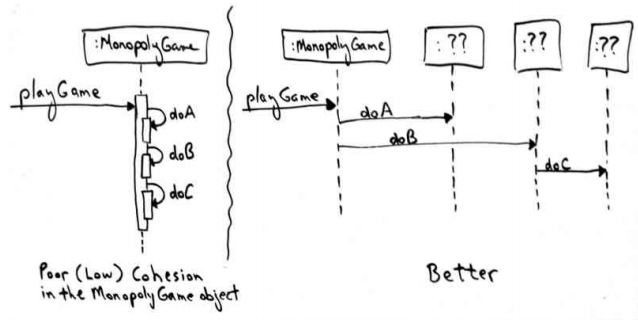 :MonopolyGame
playGame
doA
doB
doC
Poor (Low) Cohesion
in the MonopolyGame object
:MonopolyGame
: ??
:??
:??
playGame
doA
doB
doC
Better